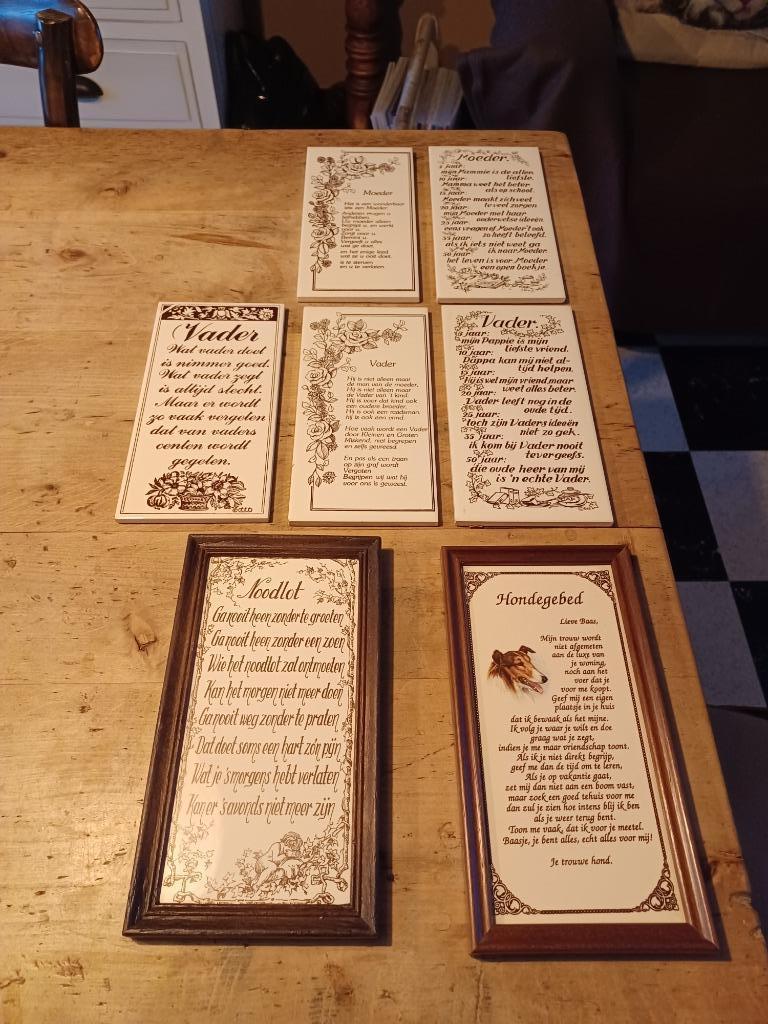 Moeder
Het is een wonderbaar
iets een Moeder.
Anderen mogen u
liefhebben.
Uw moeder alleen
begrijpt u, en werkt
voor u.
Zorgt voor u.
Bemint u.
Vergeeft u alles
wat ge doet.
en het enige leed
wat ze u ooit doet.
is te sterven
en u te verlaten.
Moeder.
5 jaar:
mijn Mammie is de aller
liefste.
10 jaar:
Mamma weet het beter
als op school.
15 jaar:
Moeder maakt zich veel
te veel zorgen
20 jaar:
mijn Moeder met haar
ouderwetse ideeën.
25 jaar:
eens vragen of Moeder 't ook
zo heeft beleefd.
35 jaar:
als ik iets niet weet ga
ik naar Moeder.
50 jaar:
het leven is voor Moeder
een open boekje.
Vader
Wat vader doet
is nimmer goed.
Wat vader zegt
is altijd slecht.
Maar er wordt
zo vaak vergeten
dat van vaders
centen wordt
gegeten.
Vader
Hij is niet alleen maar
de man van de moeder.
Hij is niet alleen maar
de Vader van 1 kind.
Hij is voor dat kind ook
een oudere broertje.
Hij is ook een raadsman.
hij is ook een vriend.
Hoe vaak wordt een Vader
door Kleinen en Groten
Miskend, niet begrepen
en zelfs gevreesd.
En pas als een traan
op zijn graf wordt
Vergoten
Begrijpen wij wat hij
voor ons is geweest.
Vader.
5 jaar:
mijn Pappie is mijn
liefste vriend.
10 jaar:
Pappa kan mij niet al-
tijd helpen.
15 jaar:
Hij is wel mijn vriend, maar
weet alles beter.
20 jaar:
Vader leeft nog in de
oude tijd.
25 jaar:
toch zijn Vaders ideeën
niet zo gek.
35 jaar:
ik kom bij Vader nooit
tevergeefs.
50 jaar:
die oude heer van mij
is 'n echte Vader.
Noodlot
Ga nooit heen zonder te groeten
Ga nooit heen zonder een zoen
Wie het noodlot zal ontmoeten
Kan het morgen niet meer doen
Ga nooit weg zonder te praten
Dat doet soms een hart zo'n pijn
Wat je 's morgens hebt verlaten
Kan er 's avonds niet meer zijn
Hondegebed
Lieve Baas,
Mijn trouw wordt
niet afgemeten
aan de luxe van
je woning,
noch aan het
voer dat je
voor me koopt.
Geef mij een eigen
plaatsje in je huis
dat ik bewaak als het mijne.
Ik volg je waar je wilt en doe
graag wat je zegt,
indien je me maar vriendschap toont.
Als ik je niet direkt begrijp,
geef me dan de tijd om te leren,
Als je op vakantie gaat,
zet mij dan niet aan een boom vast,
maar zoek een goed tehuis voor me
dan zul je zien hoe intens blij ik ben
als je weer terug bent.
Toon me vaak, dat ik voor je meetel.
Baasje, je bent alles, echt alles voor mij!
Je trouwe hond.